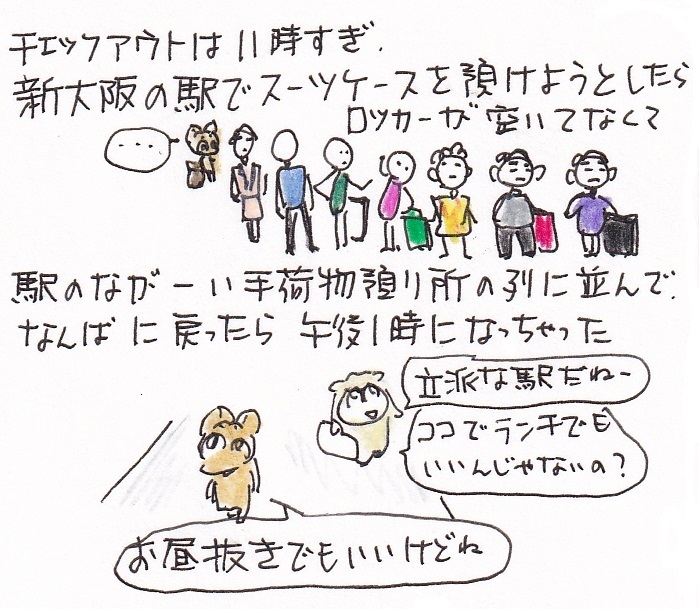 チェックアウトは11時すぎ.
新大阪の駅でスーツケースを預けようとしたら
ロッカーが空いてなくて
....
駅のながーい手荷物預り所の列に並んで.
なんばに戻ったら 午後1時になっちゃった
立派な駅だねー
ココでランチでも
いいんじゃないの?
お昼抜きでもいいけどね